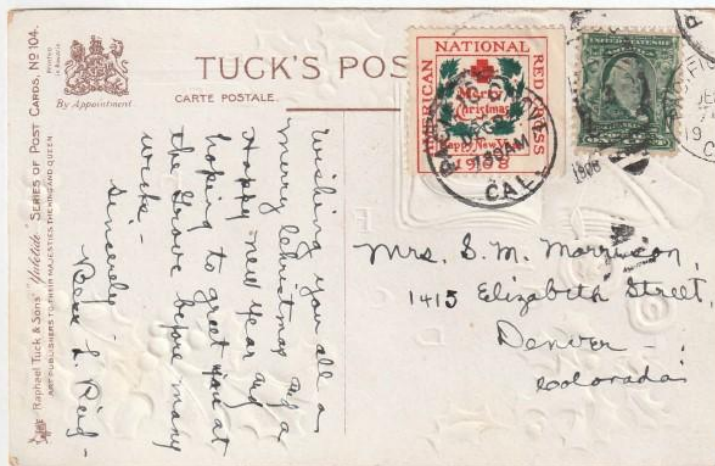 Raphael Tuck & Sons' "Yuletide" SERIES OF POST CARDS, Nº 104.
ART PUBLISHERS TO THEIR MAJESTIES THE KING AND QUEEN
Printed
in Bavaria
By Appointment
TUCK'S POS
CARTE POSTALE.
AMERICAN NATIONAL RED CROSS
Merry
Christmas
Happy New Year
1908
PACIFIC
730AM
CAL.
1908
Wishing you all a
Merry Christmas and a
Happy new year and
hoping to greet you at
the Grove before many
wicks -
Sincerely -
L. Reid -
Mrs. S. M. Morrison,
1415 Elizabeth Street,
Denver -
Colorado